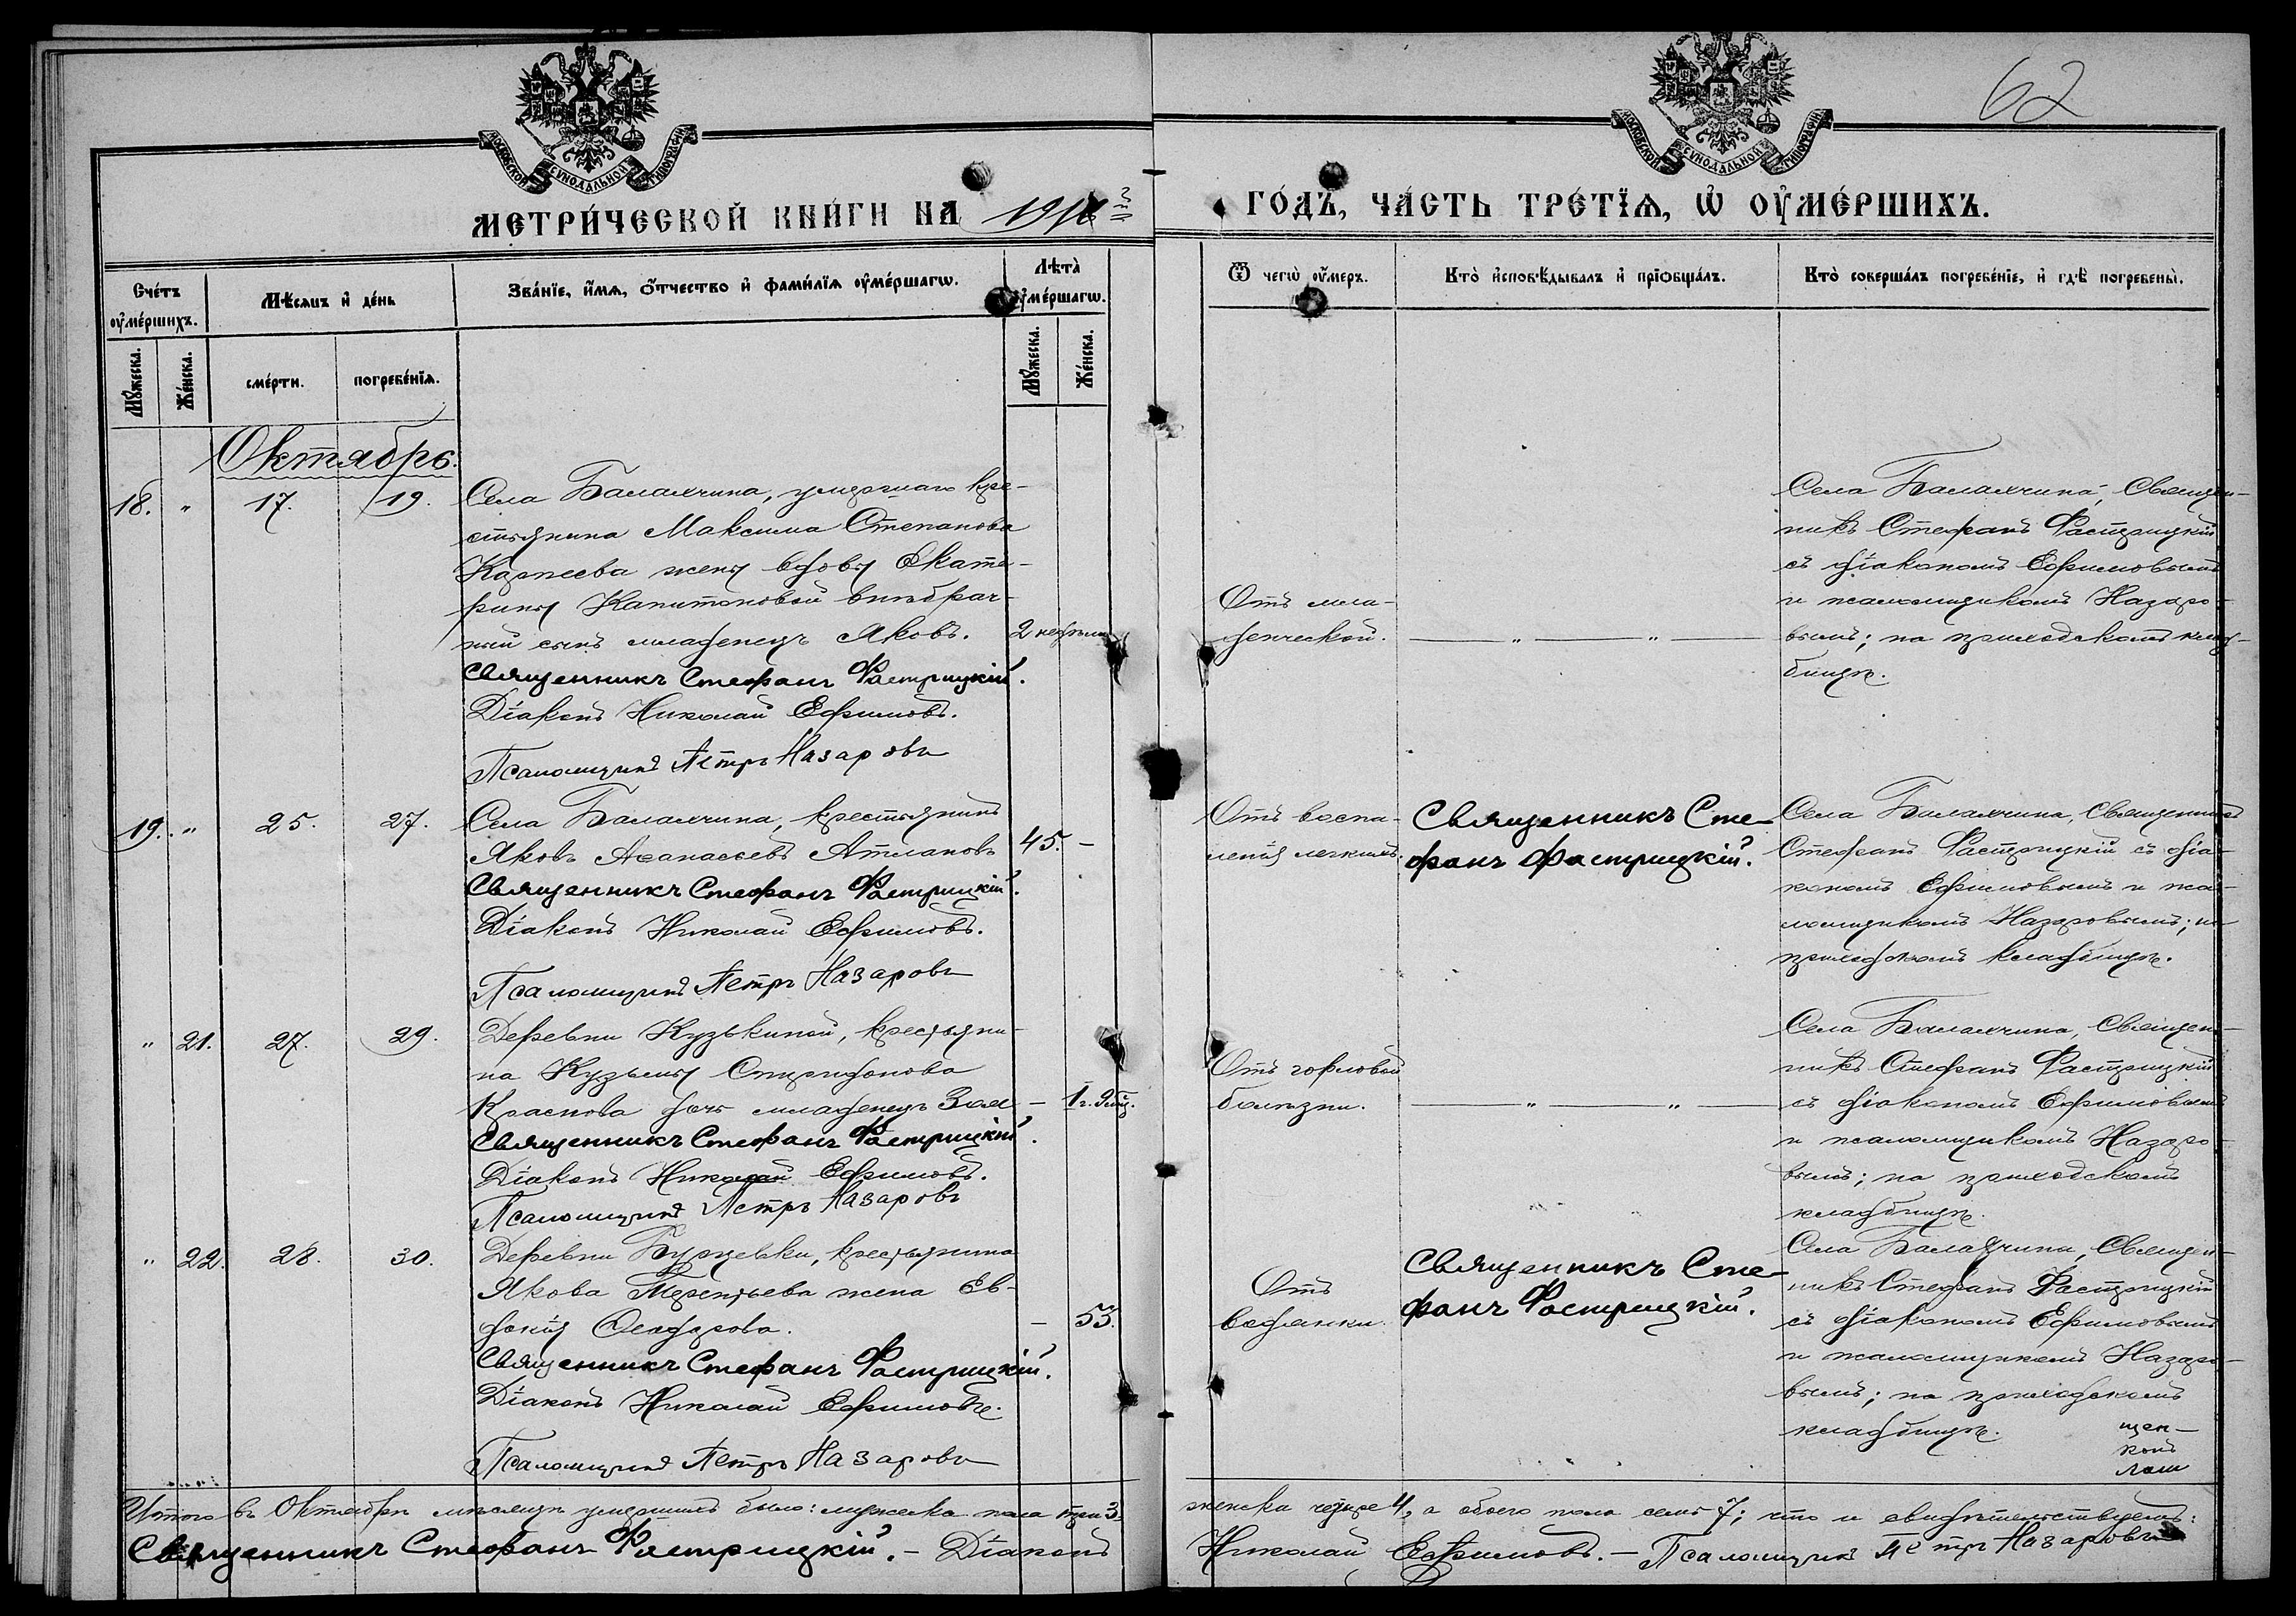 МОСКОВСКОЙ СУНОДАЛЬНОЙ ТИПОГРАФІИ
МОСКОВСКОЙ СУНОДАЛЬНОЙ ТИПОГРАФІИ
62
МЕТРИ́ЧЕСКОЙ КНИ́ГИ НА
ГО́ДЪ, ЧА́СТЬ ТРЕ́ТЇѦ, Ѡ ОУ҆МЕ́РШИХЪ.
Сче́тъ оу҆ме́ршихъ.
Мѣ́сѧцъ и҆ де́нь
Зва́нїе, и҆́мѧ, ѻ҆́тчество и҆ фами́лїѧ оу҆ме́ршагѡ.
Лѣ́та оу҆ме́ршагѡ.
Ѿ чегѡ̀ оу҆́меръ.
Кто̀ и҆сповѣ́дывалъ и҆ прїѡбща́лъ.
Кто̀ соверша́лъ погребе́нїе, и҆ гдѣ̀ погребены̀.
Мꙋ́жеска.
Же́нска.
сме́рти.
погребе́нїѧ.
Мꙋ́жеска.
Же́нска.
Октябрь.
18. " 17. 19.
Села Балахчина, умершаго кре-
стьянина Максима Степанова
Карпеева жены вдовы Екате-
рины Капитоновой внѣбрач-
ный сынъ младенецъ Яковъ.
2 недѣли
Священникъ Стефанъ Фастрицкій.
Діаконъ Николай Ефимовъ.
Псаломщикъ Петръ Назаровъ
Отъ мла-
денческой.
— " — " —
Села Балахчина, Священ-
никъ Стефанъ Фастрицкій
съ діакономъ Ефимовымъ
и псаломщикомъ Назаро-
вымъ; на приходскомъ клад-
бищѣ.
19. " 25. 27.
Села Балахчина, крестьянинъ
Яковъ Аѳанасьевъ Атлановъ
45. -
Священникъ Стефанъ Фастрицкій.
Діаконъ Николай Ефимовъ.
Псаломщикъ Петръ Назаровъ
Отъ воспа-
ленія легкихъ.
Священникъ Сте-
фанъ Фастрицкій.
Села Балахчина, Священникъ
Стефанъ Фастрицкій съ діа-
кономъ Ефимовымъ и пса-
ломщикомъ Назаровымъ; на
приходскомъ кладбищѣ.
" 21. 27. 29.
Деревни Кузькиной, крестьяни-
на Кузьмы Спиридонова
Краснова дочь младенецъ Зоя
— 1 г.
Священникъ Стефанъ Фастрицкій.
Діаконъ Николай Ефимовъ.
Псаломщикъ Петръ Назаровъ
Отъ горловой
болѣзни.
— " — " —
Села Балахчина, Священ-
никъ Стефанъ Фастрицкій
съ діакономъ Ефимовымъ
и псаломщикомъ Назаро-
вымъ; на приходскомъ
кладбищѣ.
" 22. 28. 30.
Деревни Бурцевки, крестьянина
Якова Терентьева жена Ев-
докія
— 53.
Священникъ Стефанъ Фастрицкій.
Діаконъ Николай Ефимовъ.
Псаломщикъ Петръ Назаровъ
Отъ
водянки.
Священникъ Сте-
фанъ Фастрицкій.
Села Балахчина, Священ-
никъ Стефанъ Фастрицкій
съ діакономъ Ефимовымъ
и псаломщикомъ Назаро-
вымъ; на приходскомъ
кладбищѣ.
щен-
конъ
лом
Итого въ Октябрѣ мѣсяцѣ умершихъ было: мужеска пола три 3,
женска четыре 4, а обоего пола семь 7; что и свидѣтельствуемъ:
Священникъ Стефанъ Фастрицкій. — Діаконъ
Николай Ефимовъ. — Псаломщикъ Петръ Назаровъ